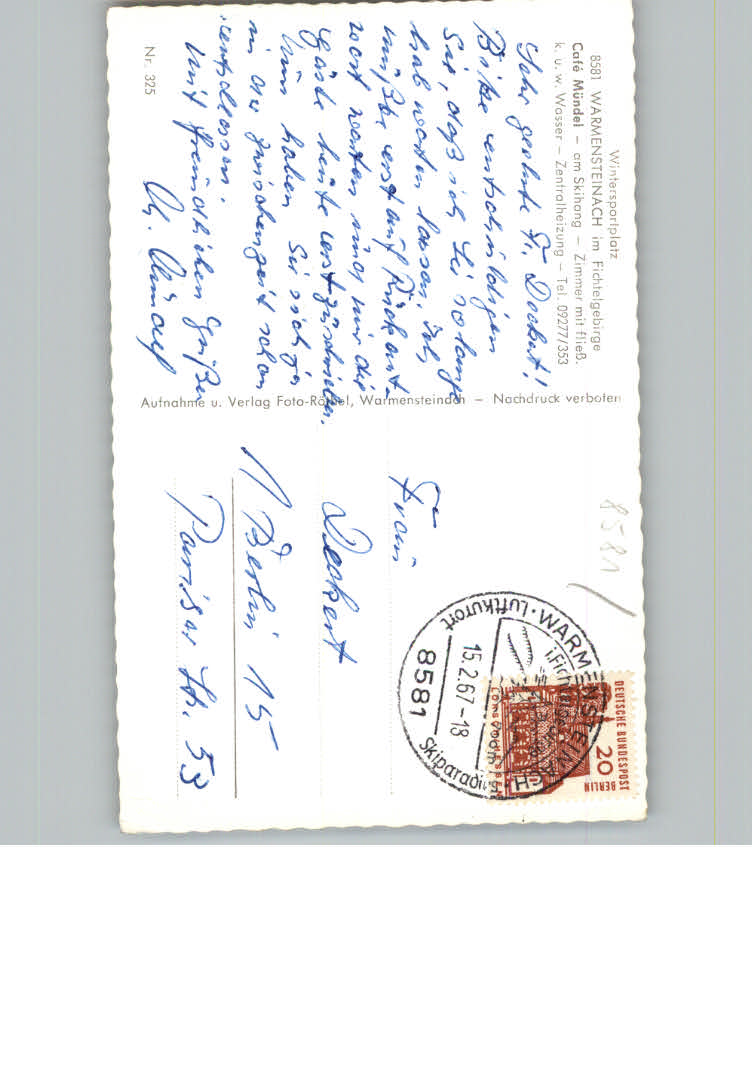 Wintersportplatz
8581 WARMENSTEINACH im Fichtelgebirge
Café Mündel – am Skihang – Zimmer mit fließ.
k. u. w. Wasser – Zentralheizung – Tel. 09277/353
Sehr geehrte Fr. Deckert!
Bitte entschuldigen
Sie, daß ich Sie so lange
hab warten lassen. Ich
mußte erst auf Rückant-
wort warten und mir die
Gäste heute erst zuschrieben.
Nun haben Sie sich ja
in der Zwischenzeit schon
entschlossen.
Mit freundlichen Grüßen
Nr. 325
Aufnahme u. Verlag Foto-Röthel, Warmensteinach – Nachdruck verboten
8581
Frau
Deckert
1 Berlin 15
Pariser Str. 53
WARMENSTEINACH
i. Fichtelgeb.
Luftkurort
15.2.67-18
8581
Skiparadies
DEUTSCHE BUNDESPOST
BERLIN
20
Lorsch/Hessen